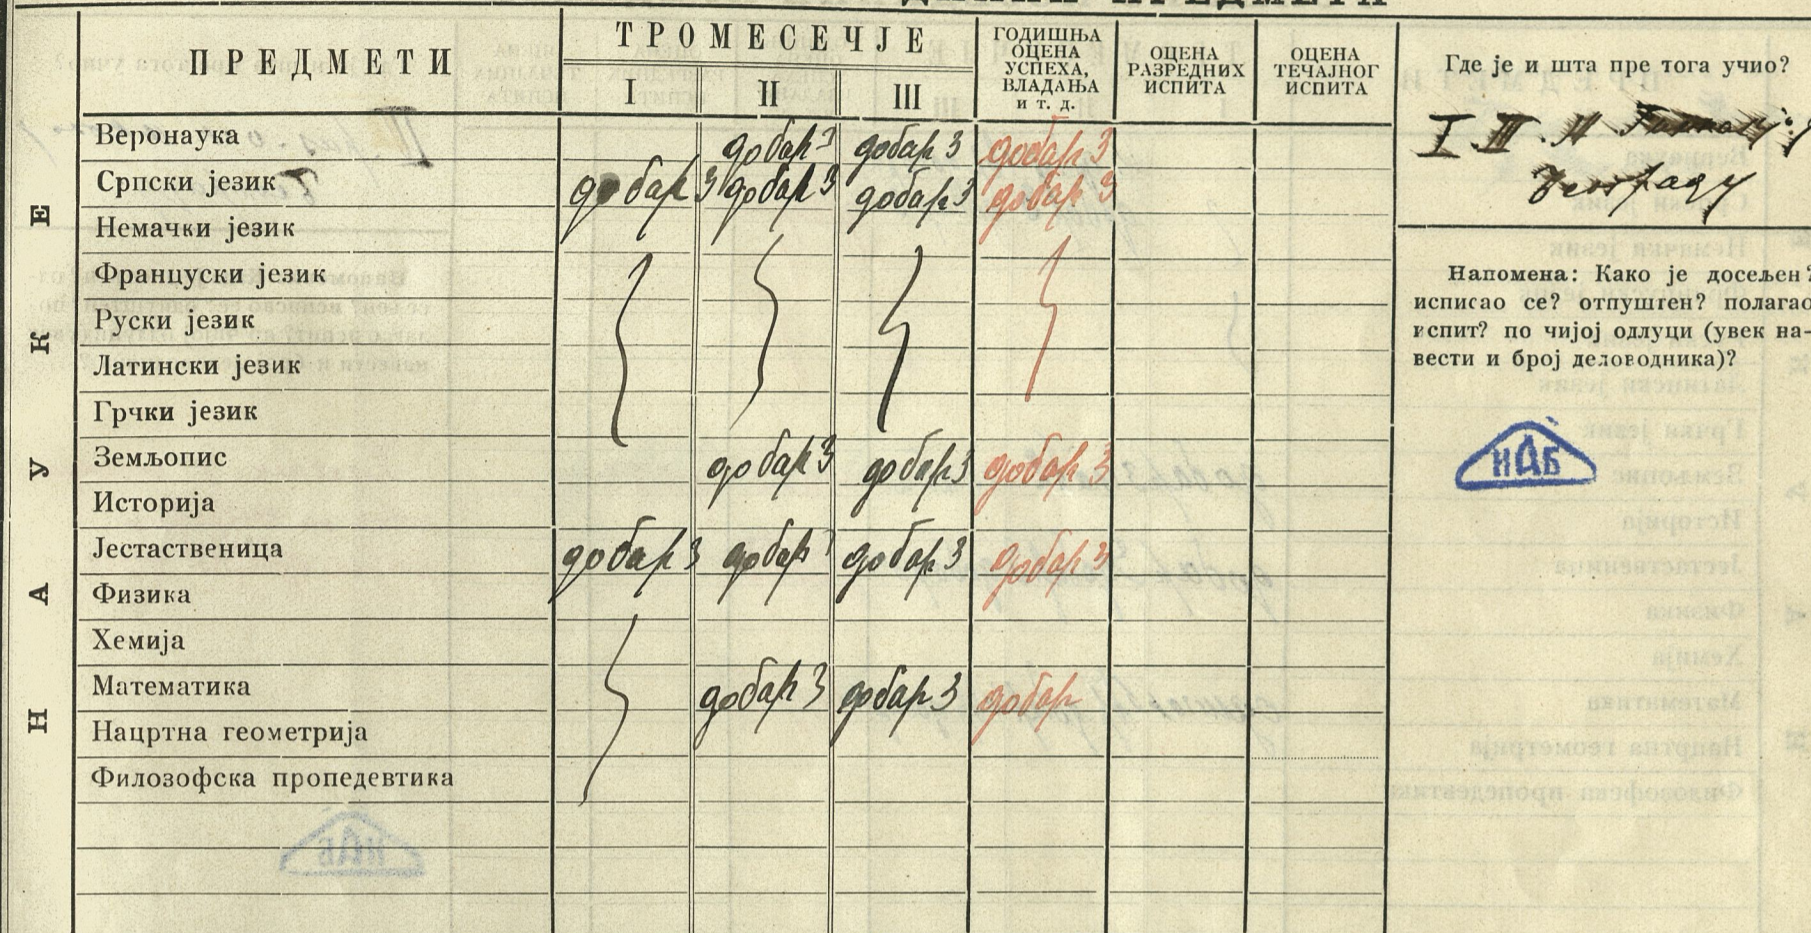 ПРЕДМЕТИ
ТРОМЕСЕЧЈЕ
I II III
ГОДИШЊА ОЦЕНА УСПЕХА, ВЛАДАЊА и т. д.
ОЦЕНА РАЗРЕДНИХ ИСПИТА
ОЦЕНА ТЕЧАЈНОГ ИСПИТА
Где је и шта пре тога учио?
НАУКЕ
Веронаука добар 3 добар 3 добар 3
Српски језик добар 3 добар 3 добар 3 добар 3
Немачки језик
Француски језик
Руски језик
Латински језик
Грчки језик
Земљопис добар 3 добар 3 добар 3
Историја
Јестаственица добар 3 добар 3 добар 3 добар 3
Физика
Хемија
Математика добар 3 добар 3 добар
Нацртна геометрија
Филозофска пропедевтика
Београду
Напомена: Како је досељен?
исписао се? отпуштен? полагао
испит? по чијој одлуци (увек на-
вести и број деловодника)?
ИАБ